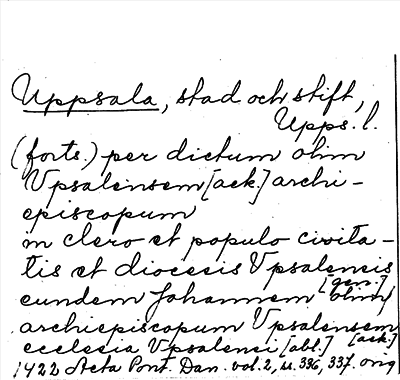 Uppsala, stad och stift,
Upps. l.
(forts.) per dictum olim
Vpsalensem [ack.] archi-
episcopum
in clero et populo civita-
tis et diocesis Vpsalensis
[gen.]
eundem Johannem olim
archiepiscopum Vpsalensem
[ack.]
ecclesia Vpsalensi [abl.]
1422 Acta Pont. Dan. vol. 2, s. 336, 337. orig